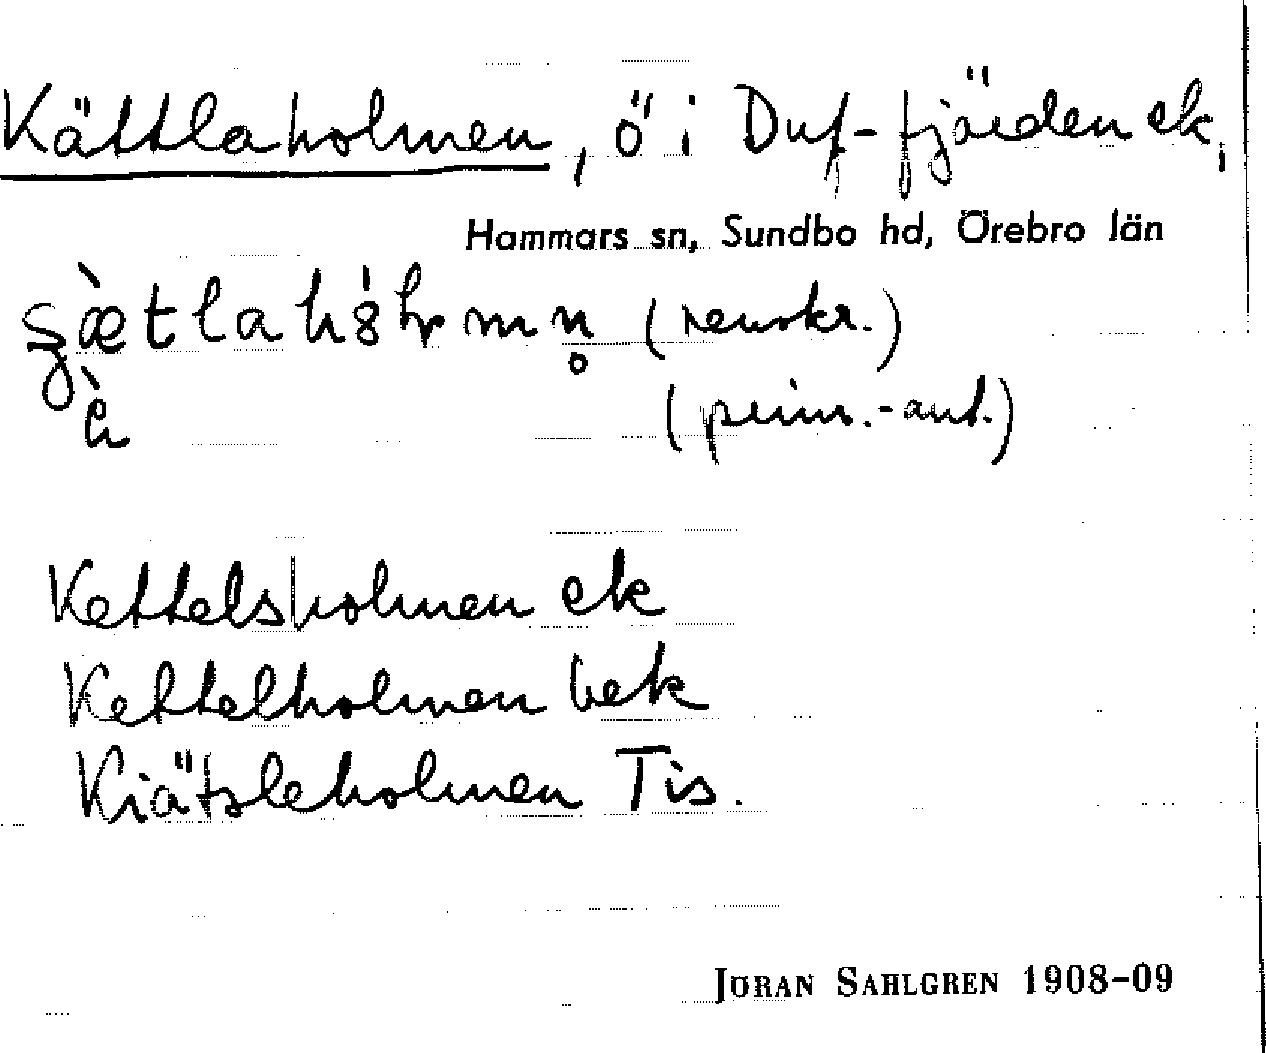 Kättlaholmen, ö i Duf-fjärden ek,
Hammars sn, Sundbo hd, Örebro län
(renskr.)
(prim.-ant.)
Kettelsholmen ek
Kettelholmen bek
Kiätsleholmen Tis.
JÖRAN SAHLGREN 1908-09